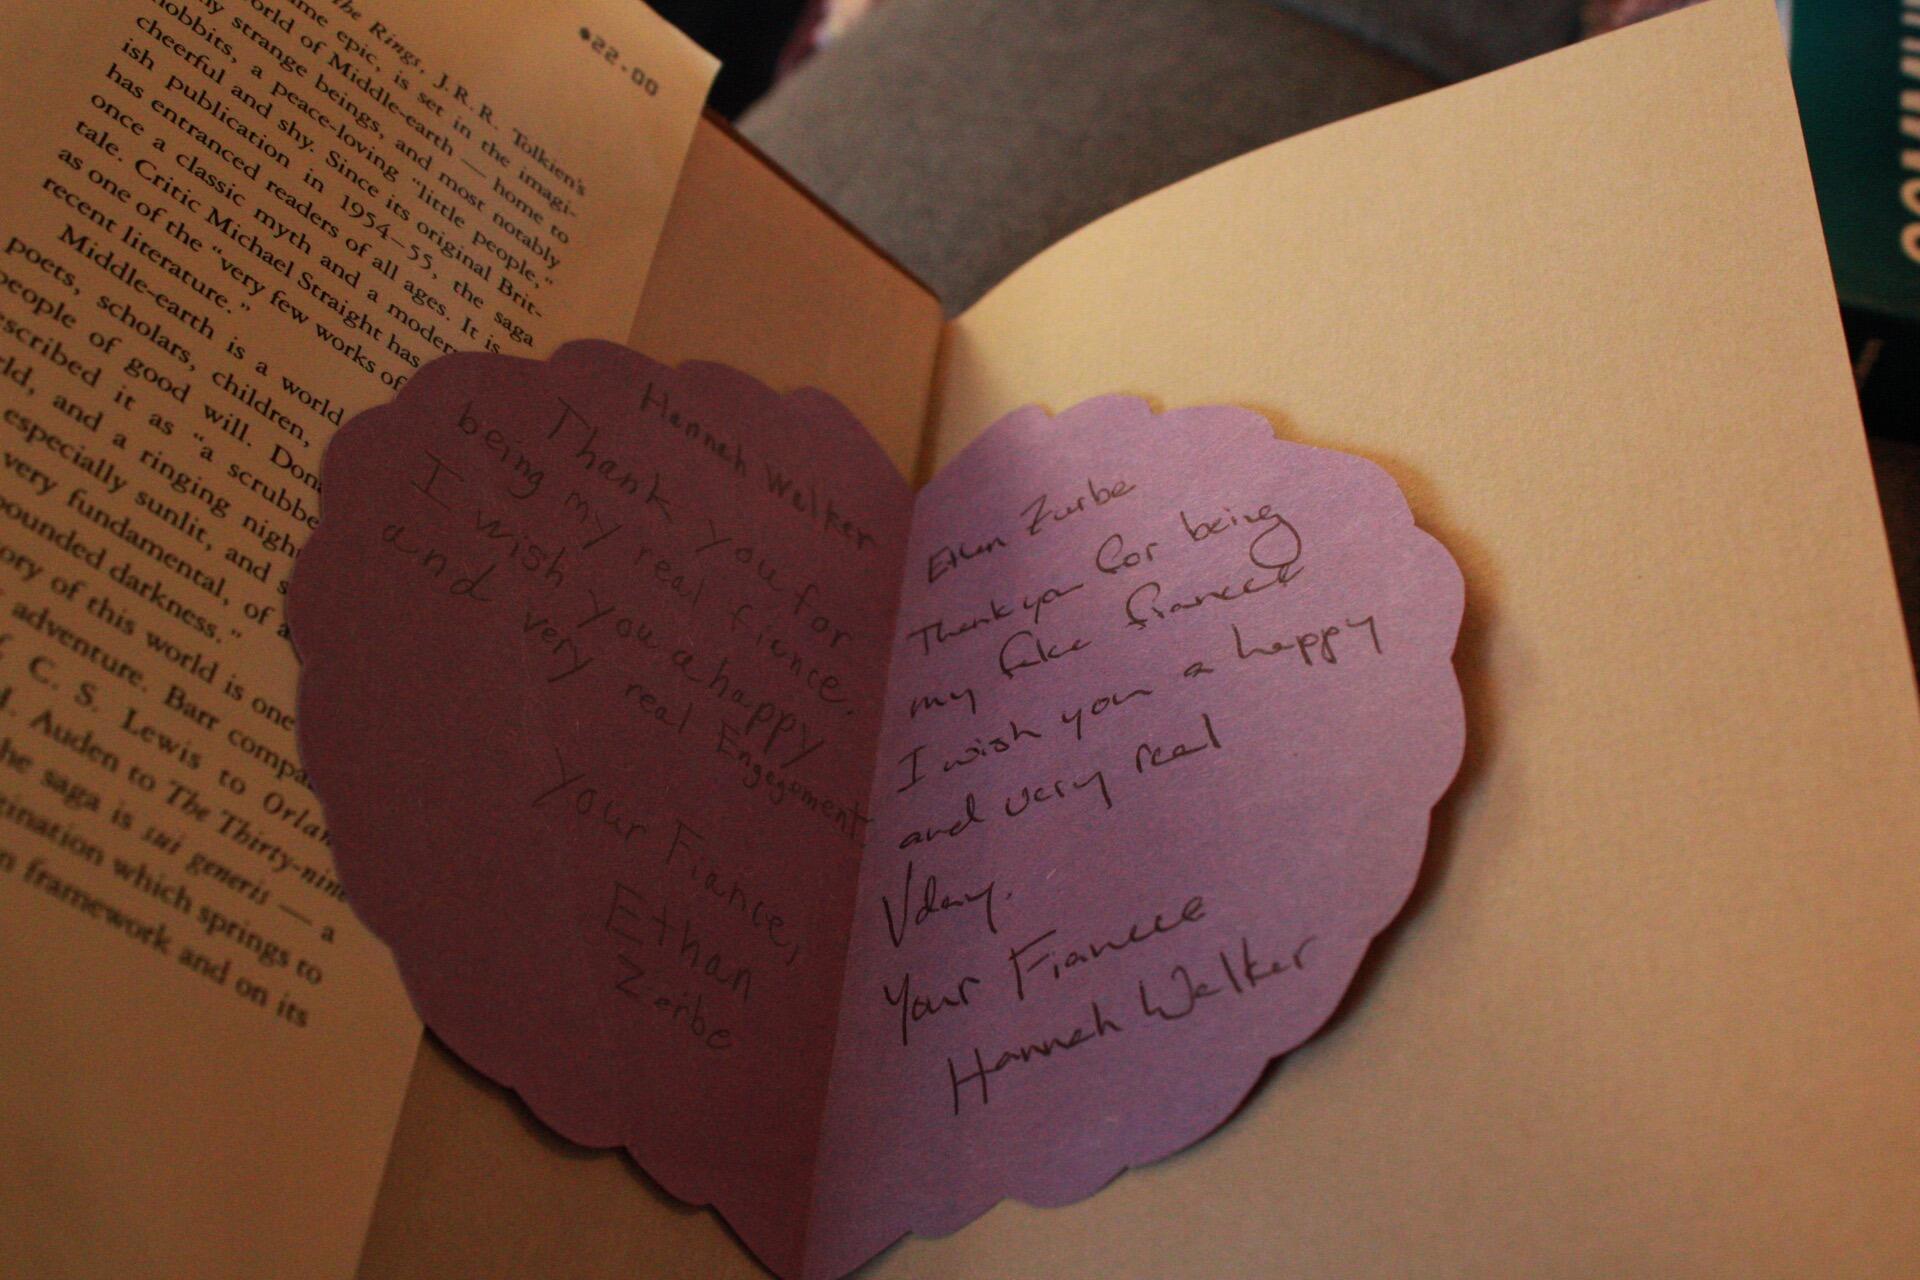 $22.00
the Rings, J. R. R. Tolkien's
epic, is set in the imagi-
world of Middle-earth — home to
strange beings, and most notably
hobbits, a peace-loving "little people,"
cheerful and shy. Since its original Brit-
ish publication in 1954–55, the saga
has entranced readers of all ages. It is
once a classic myth and a moder
tale. Critic Michael Straight has
as one of the "very few works of
recent literature."
Middle-earth is a world
poets, scholars, children,
people of good will. Don
escribed it as "a scrubbe
ld, and a ringing night
especially sunlit, and s
very fundamental, of a
pounded darkness."
ory of this world is one
adventure. Barr compa
C. S. Lewis to Orlan
Auden to The Thirty-nine
he saga is sui generis — a
gination which springs to
n framework and on its
Hannah Walker
Thank you for
being my real fience.
I wish you a happy
and very real Engegoment
Your Fiance,
Ethan
Zerbe
Ethan Zurbe
Thank you for being
my fake fiancee
I wish you a happy
and very real
Vday.
Your Fiancee
Hannah Walker